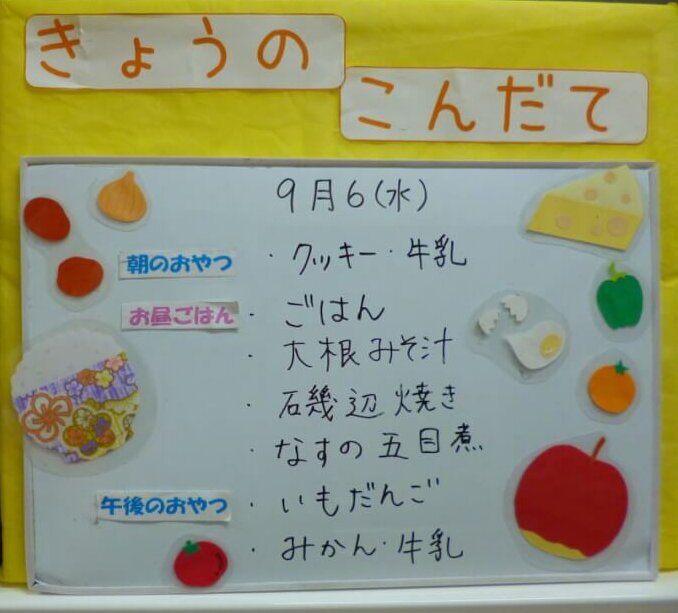 きょうの
こんだて
9月6(水)
朝のおやつ ・クッキー・牛乳
お昼ごはん ・ごはん
・大根みそ汁
・石幾辺焼き
・なすの五目煮
午後のおやつ ・いもだんご
・みかん・牛乳